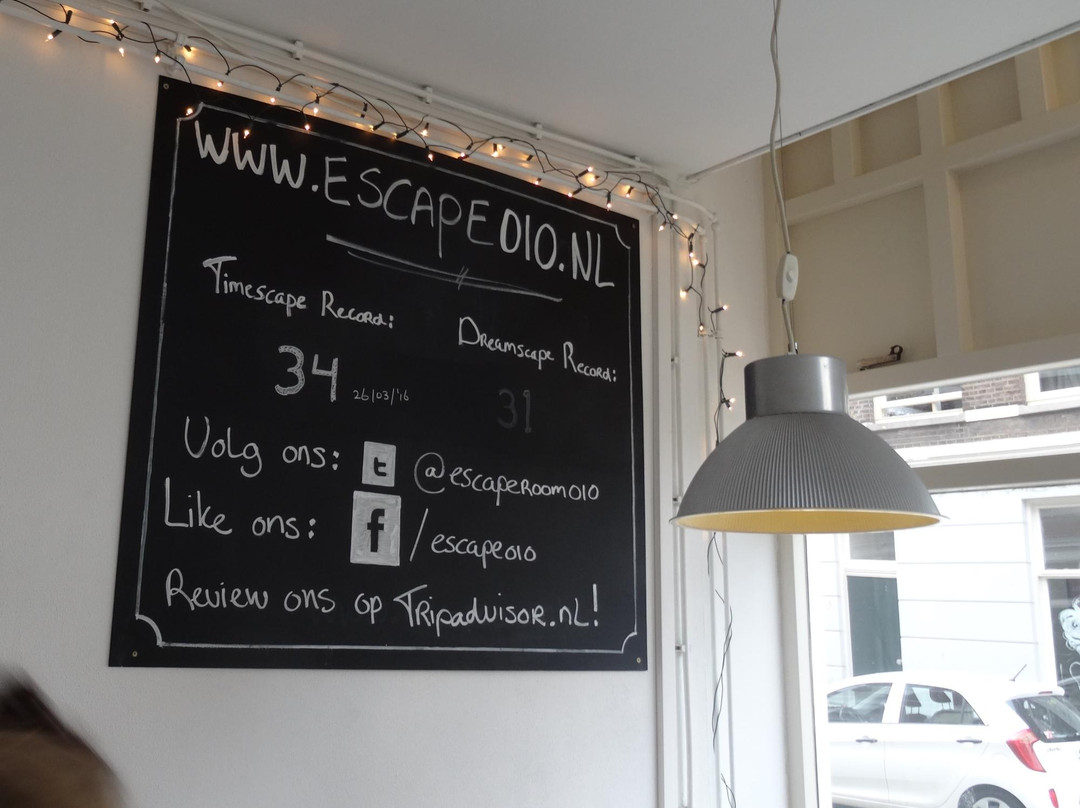 WWW.ESCAPE010.NL
Timescape Record:
Dreamscape Record:
34 26/03/'16
31
Volg ons: t @escaperoom010
Like ons: f /escape010
Review ons op Tripadvisor.nl!